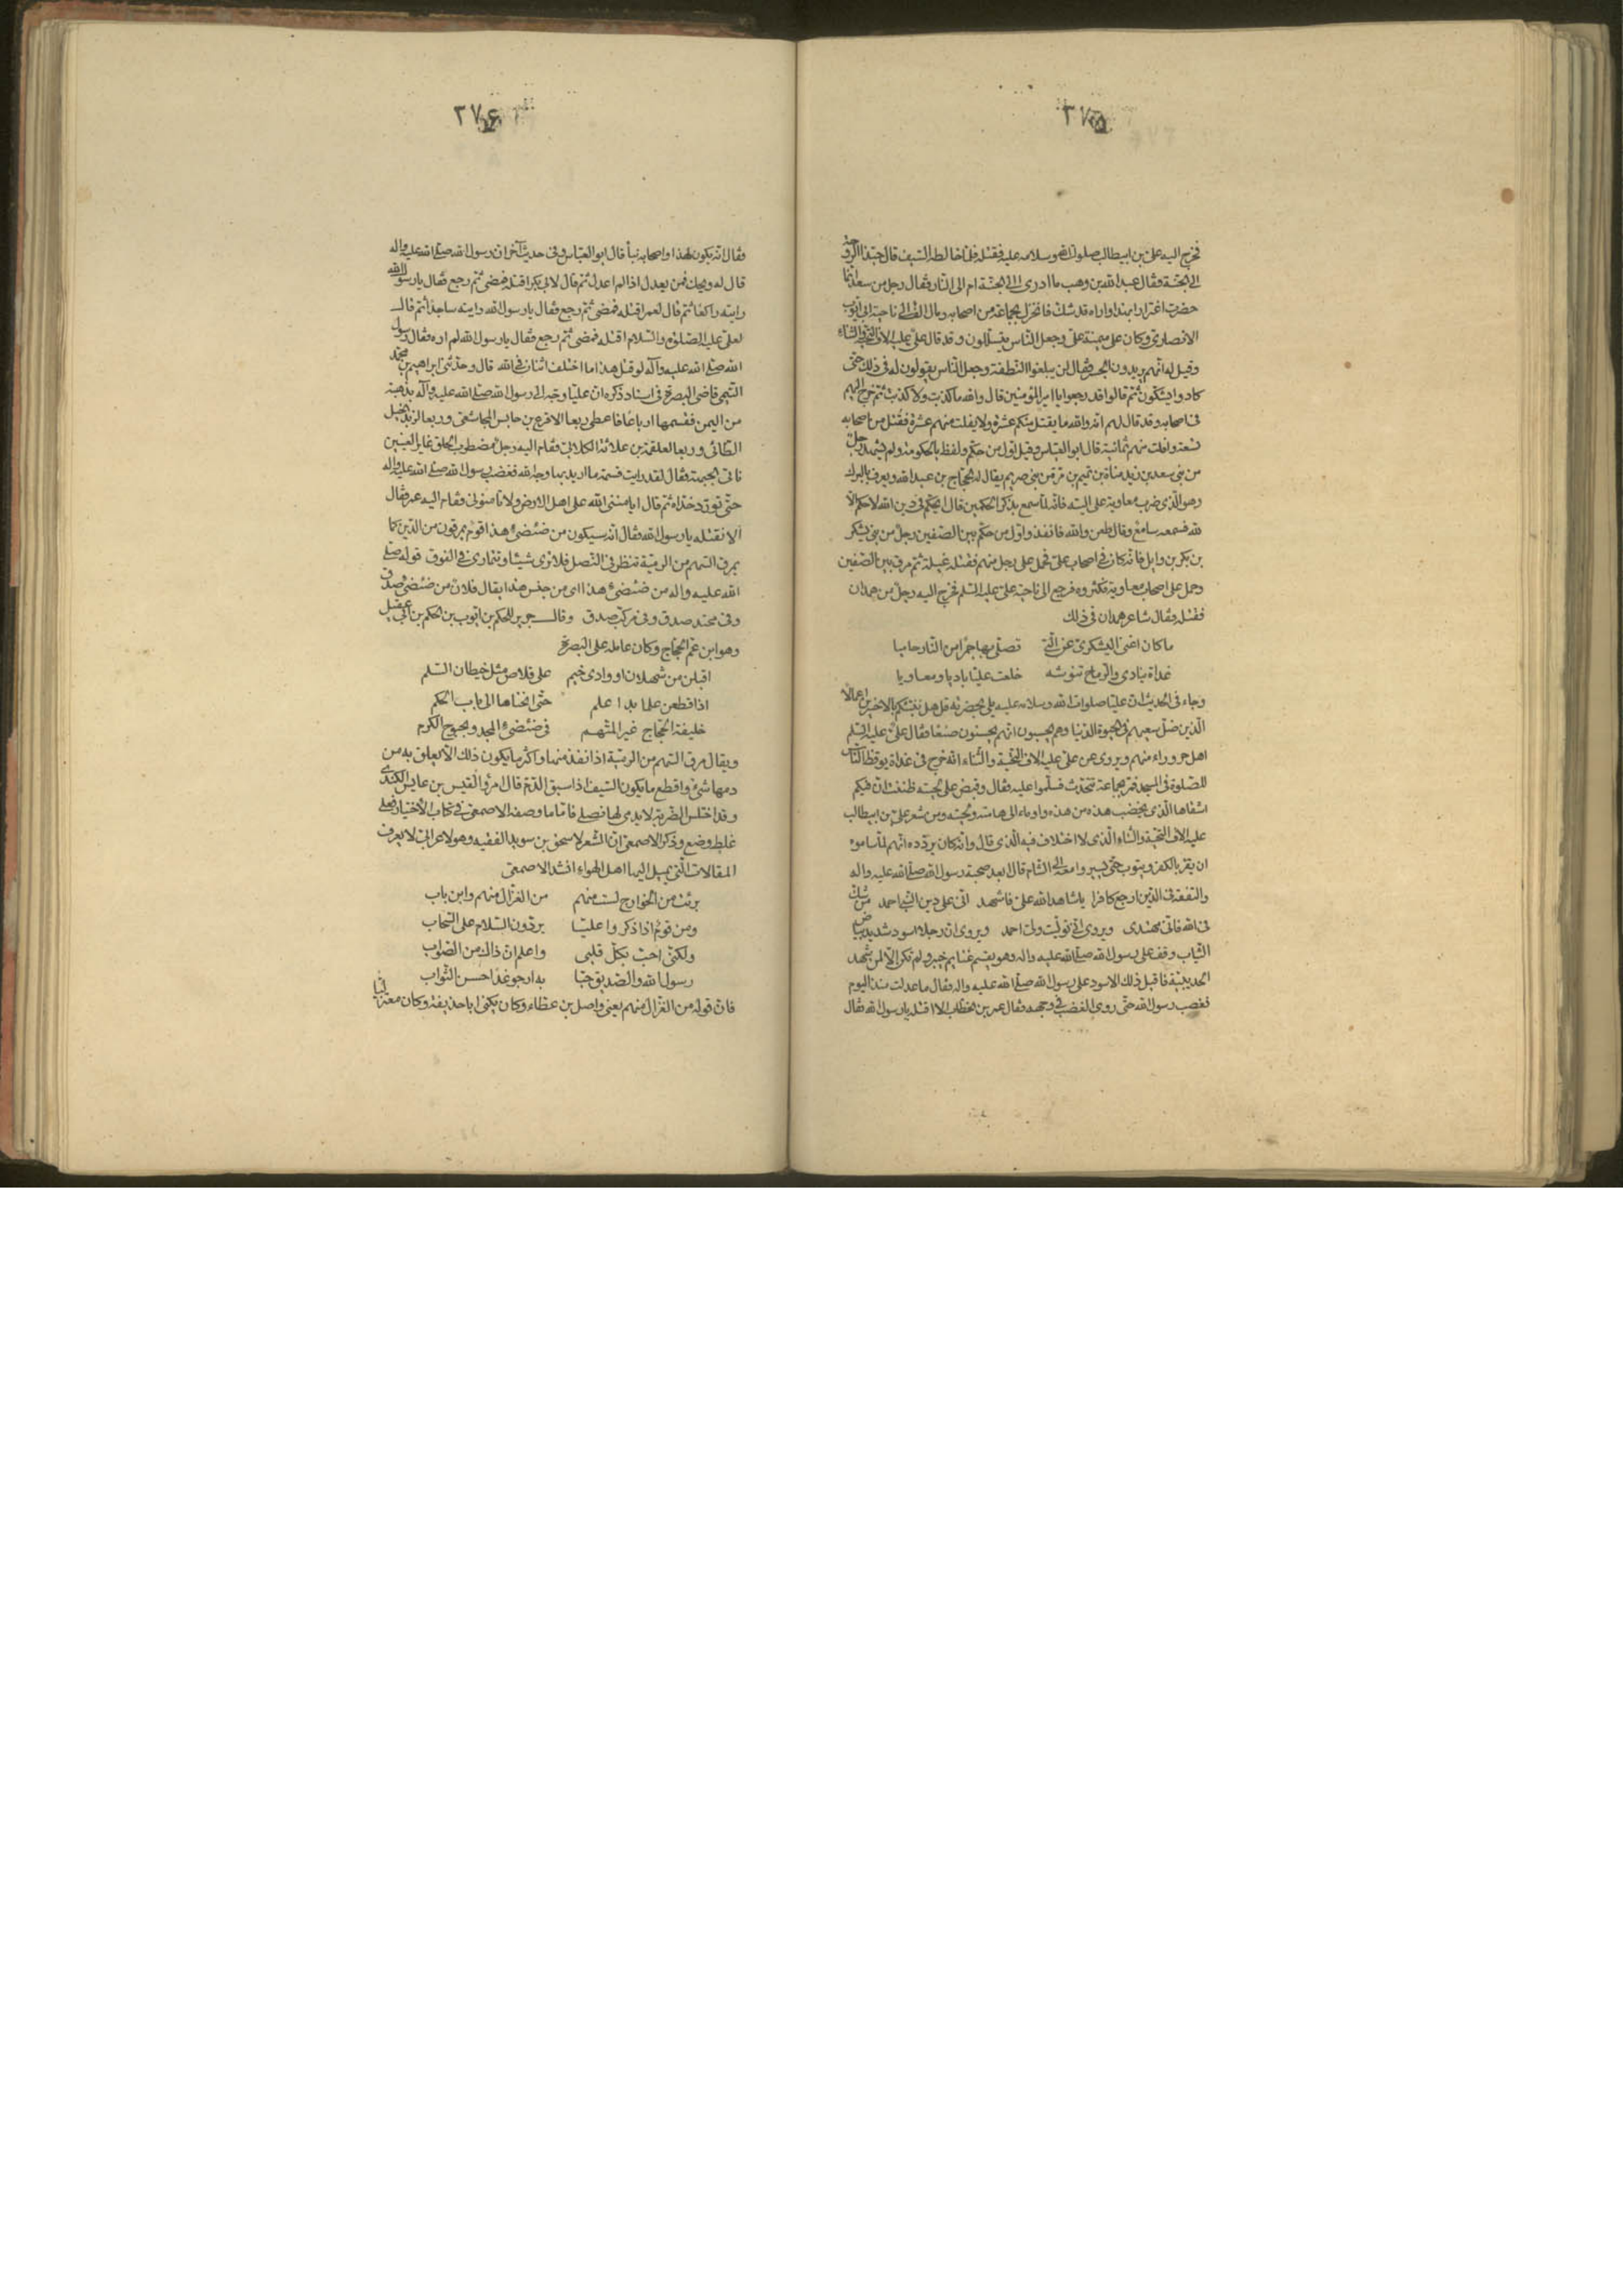 ٣٧٥
فخرج اليه علي بن ابيطالب صلوات الله وسلامه عليه فقتله فلما خالطه السيف قال حبذا الروحة
الى الجنة فقال عبد الله بن وهب ما ادرى الى الجنة ام الى النار فقال رجل من سعد انما
حضرت اغترارا بهذا واراه قد شك فانخزل بجماعة من اصحابه ومال الف الى ناحية ابي ايوب
الانصاري وكان على ميمنة علي وجعل الناس يتسللون وقد قال علي عليه الاف التحية والثناء
وقيل له انهم يريدون الجسر فقال لن يبلغوا النطفة وجعل الناس يقولون له في ذلك حتى
كادوا يشكون ثم قالوا قد رجعوا يا امير المؤمنين قال والله ما كذبت ولا كذبت ثم خرج اليهم
في اصحابه وقد قال لهم انه والله ما يقتل منكم عشرة ولا يفلت منهم عشرة فقتل من اصحابه
تسعة وافلت منهم ثمانية قال ابو العباس وقيل اول من حكم ولفظ بالحكومة ولم يشد رجل
من بني سعد بن زيد مناة بن تميم بن مر ثم من بني صريم يقال له الحجاج بن عبد الله ويعرف بالبرك
وهو الذي ضرب معاوية على اليته فانه لما سمع بذكر الحكمين قال ايحكم في دين الله لا حكم الا
لله فسمعه سامع وقال طعن والله فانفذ واول من حكم بين الصفين رجل من بني يشكر
بن بكر بن وايل فانه كان في اصحاب علي فحمل على رجل منهم فقتله غيلة ثم مرق بين الصفين
وحمل على اصحاب معاوية فكثروه فرجع الى ناحية علي عليه السلم فخرج اليه رجل من همدان
فقتله وقال شاعر همدان في ذلك
ما كان اغنى اليشكري عن التي تصلى بها جمرا من النار حاميا
غداة ينادي والرماح تنوشه خلعت عليا باديا ومعاويا
وجاء في الحديث ان عليا صلوات الله وسلامه عليه يلى بحضرته قل هل ننبئكم بالاخسرين اعمالا
الذين ضل سعيهم في الحيوة الدنيا وهم يحسبون انهم يحسنون صنعا فقال علي عليه السلم
اهل حروراء منهم ويروى عن علي عليه الاف التحية والثناء انه خرج في غداة يوقظ الناس
للصلوة في المسجد فمر بجماعة تتحدث فسلم وسلموا عليه فقال وقبض على لحيته ظننت ان فيكم
اشقاها الذي يخضب هذه من هذه واومأ الى هامته ولحيته ومن شعر علي بن ابيطالب
عليه الاف التحية والثناء الذي لا اختلاف فيه الذي قال وانه كان يردده انهم لما ساموه
ان يقر بالكفر ويتوب حتى يسيروا معه الى الشام قال ابعد صحبة رسول الله صلى الله عليه واله
والتفقه في الدين ارجع كافرا يا شاهد الله علي فاشهد اني على دين النبي احمد من شك
في الله فاني مهتدى ويروى اني توليت ولي احمد ويروى ان رجلا اسود شديد بياض
الثياب وقف على رسول الله صلى الله عليه واله وهو يقسم غنايم خيبر ولم تكن الا لمن شهد
الحديبية فاقبل ذلك الاسود على رسول الله صلى الله عليه واله فقال ما عدلت منذ اليوم
فغضب رسول الله حتى روى الغضب في وجهه فقال عمر بن الخطاب الا اقتله يا رسول الله فقال
٣٧۶
فقال انه يكون لهذا واصحابه نبأ قال ابو العباس وفي حديث آخر ان رسول الله صلى الله عليه واله
قال له ويحك فمن يعدل اذا لم اعدل ثم قال لابي بكر اقتله فمضى ثم رجع فقال يا رسول الله
رايته راكعا ثم قال لعمر اقتله فمضى ثم رجع فقال يا رسول الله رايته ساجدا ثم قال
لعلي عليه الصلوة والسلام اقتله فمضى ثم رجع فقال يا رسول الله لم اره فقال رسول
الله صلى الله عليه وآله لو قتل هذا ما اختلف اثنان في الله قال وحدثني ابراهيم بن محمد
التيمي قاضي البصرة في اسناد ذكره ان عليا وجه الى رسول الله صلى الله عليه وآله بذهبة
من اليمن فقسمها ارباعا فاعطى ربعا الاقرع بن حابس المجاشعي وربعا لزيد الخيل
الطائي وربعا لعلقمة بن علاثة الكلابي فقام اليه رجل مضطرب الخلق غاير العينين
ناتى الجبهة فقال لقد رايت قسمة ما اريد بها وجه الله فغضب رسول الله صلى الله عليه واله
حتى تورد خداه ثم قال ايامننى الله على اهل الارض ولا تامنونى فقام اليه عمر فقال
الا نقتله يا رسول الله فقال انه سيكون من ضئضئ هذا قوم يمرقون من الدين كما
يمرق السهم من الرمية تنظر في النصل فلا ترى شيئا وتتمارى في الفوق قوله صلى
الله عليه واله من ضئضئ هذا اى من جنس هذا يقال فلان من ضئضئ صدق
وفي محتد صدق وفي مركب صدق وقال جرير للحكم بن ايوب بن الحكم بن ابي عقيل
وهو ابن عم الحجاج وكان عامله على البصرة
اقبلن من ثهلان او وادى خيم على قلاص مثل خيطان السلم
اذا قطعن علما بدا علم حتى انخناها الى باب الحكم
خليفة الحجاج غير المتهم في ضئضئ المجد وبحبوح الكرم
ويقال مرق السهم من الرمية اذا نفذ منها واكثر ما يكون ذلك الا يعلق به من
دمها شئ واقطع ما يكون السيف اذا سبق الدم قال امرؤ القيس بن عابس الكندى
وقد اختلس الضربة لا يدمى لها نصلى فاما ما وصفه الاصمعي في كتاب الاختيار فعلى
غلط وضع وذكر الاصمعي ان الشعر لاسحق بن سويد الفقيه وهو لاعرابي لا يعرف
المقالات التي يميل اليها اهل الهواء انشد الاصمعي
برئت من الخوارج لست منهم من الغزال منهم وابن باب
ومن قوم اذا ذكروا عليا يردون السلام على السحاب
ولكني احب بكل قلبي واعلم ان ذاك من الصواب
رسول الله والصديق حبا به ارجو غدا حسن الثواب
فان قوله من الغزال منهم يعني واصل بن عطاء وكان يكنى ابا حذيفة وكان معتزليا